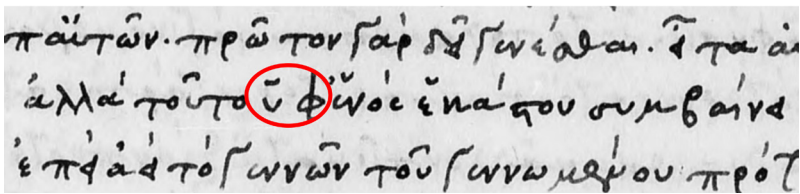 παὐτῶν. πρῶτον γάρ δεῖ γενέσθαι. εἶτα
ἀλλὰ τοῦτο ὑφ ἑνὸς ἑκάστου συμβαίνει
ἐπεὶ ἀεὶ τὸ γεννῶν τοῦ γεννωμένου πρότ